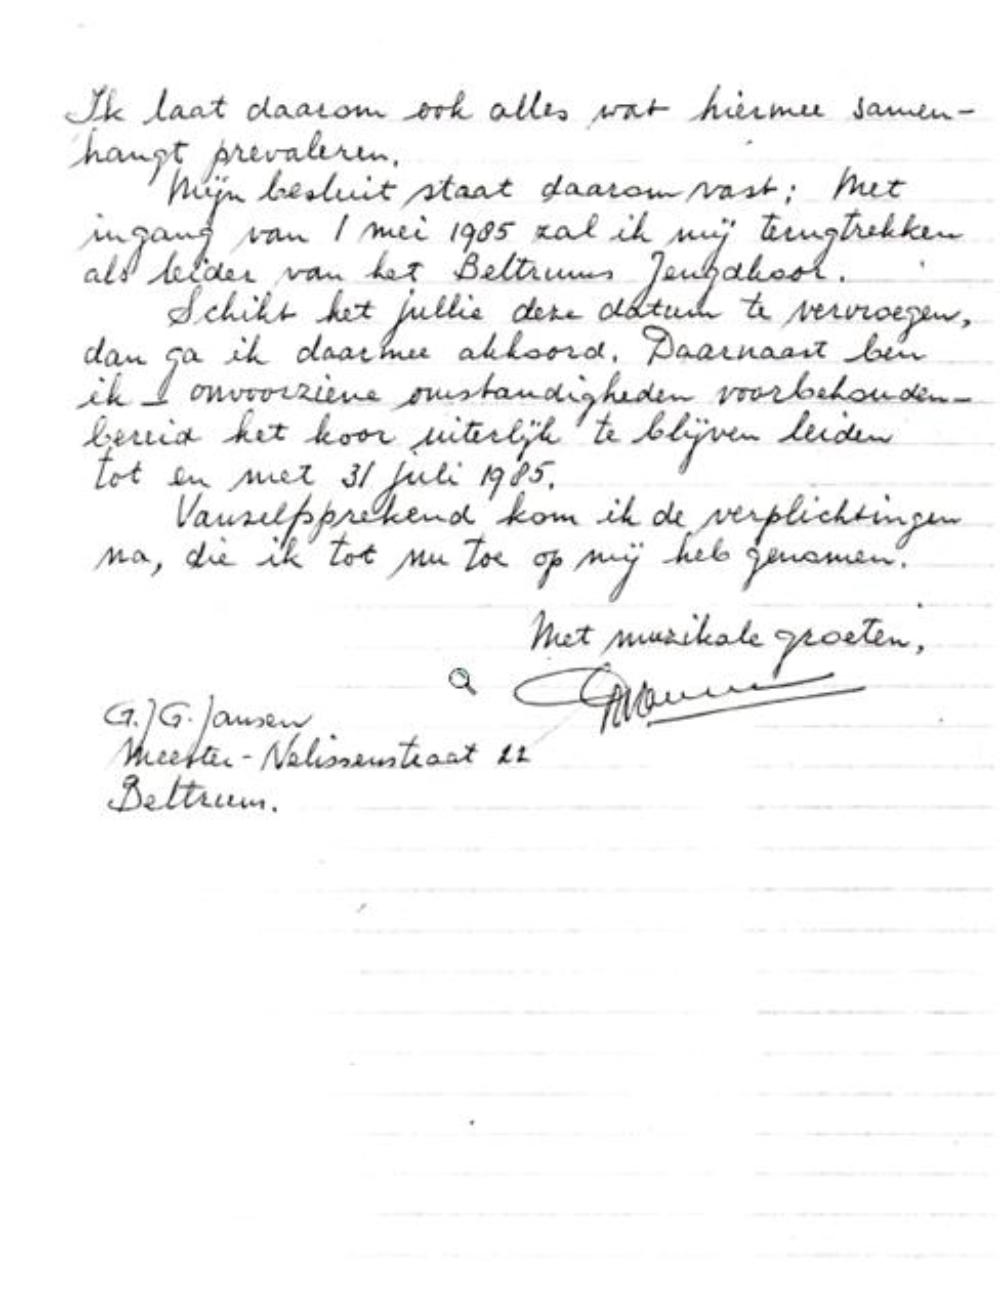 Ik laat daarom ook alles wat hiermee samen-
hangt prevaleren.
Mijn besluit staat daarom vast: Met
ingang van 1 mei 1985 zal ik mij terugtrekken
als leider van het Beltrums Jeugdkoor.
Schikt het jullie deze datum te vervroegen,
dan ga ik daarmee akkoord. Daarnaast ben
ik - onvoorziene omstandigheden voorbehouden-
bereid het koor uiterlijk te blijven leiden
tot en met 31 juli 1985.
Vanzelfpprekend kom ik de verplichtingen
na, die ik tot nu toe op mij heb genomen.
Met muzikale groeten,
G.J.G. Jansen
Meester-Nelissenstraat 22
Beltrum.